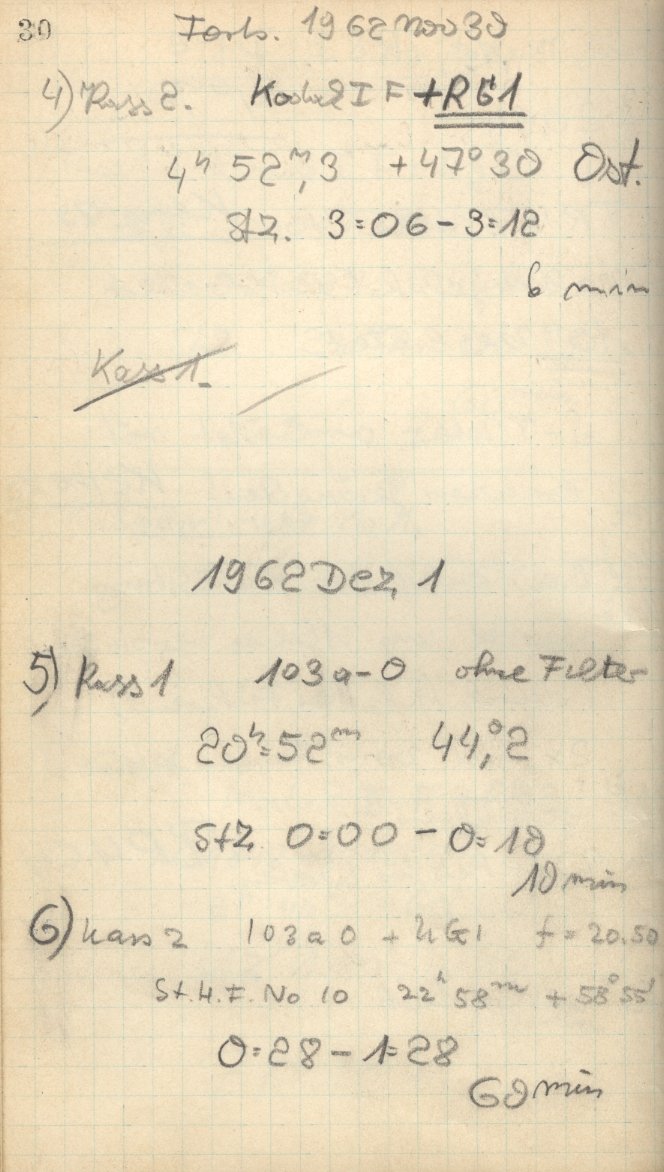 30 Forts. 1962 Nov 30
4) Kass 2. Kodak II F + RG1
4h 52m,3 +47° 30 Ost.
StZ. 3=06 - 3=12
6 min
Kass 1.
1962 Dez 1
5) Kass 1 103a-O ohne Filter
20h=52m 44,°2
StZ 0=00 - 0=10
10 min
6) Kass 2 103a O + UG1 f = 20.50
St.H.F. No 10 22h 58m + 58° 55'
0=28 - 1=28
60 min